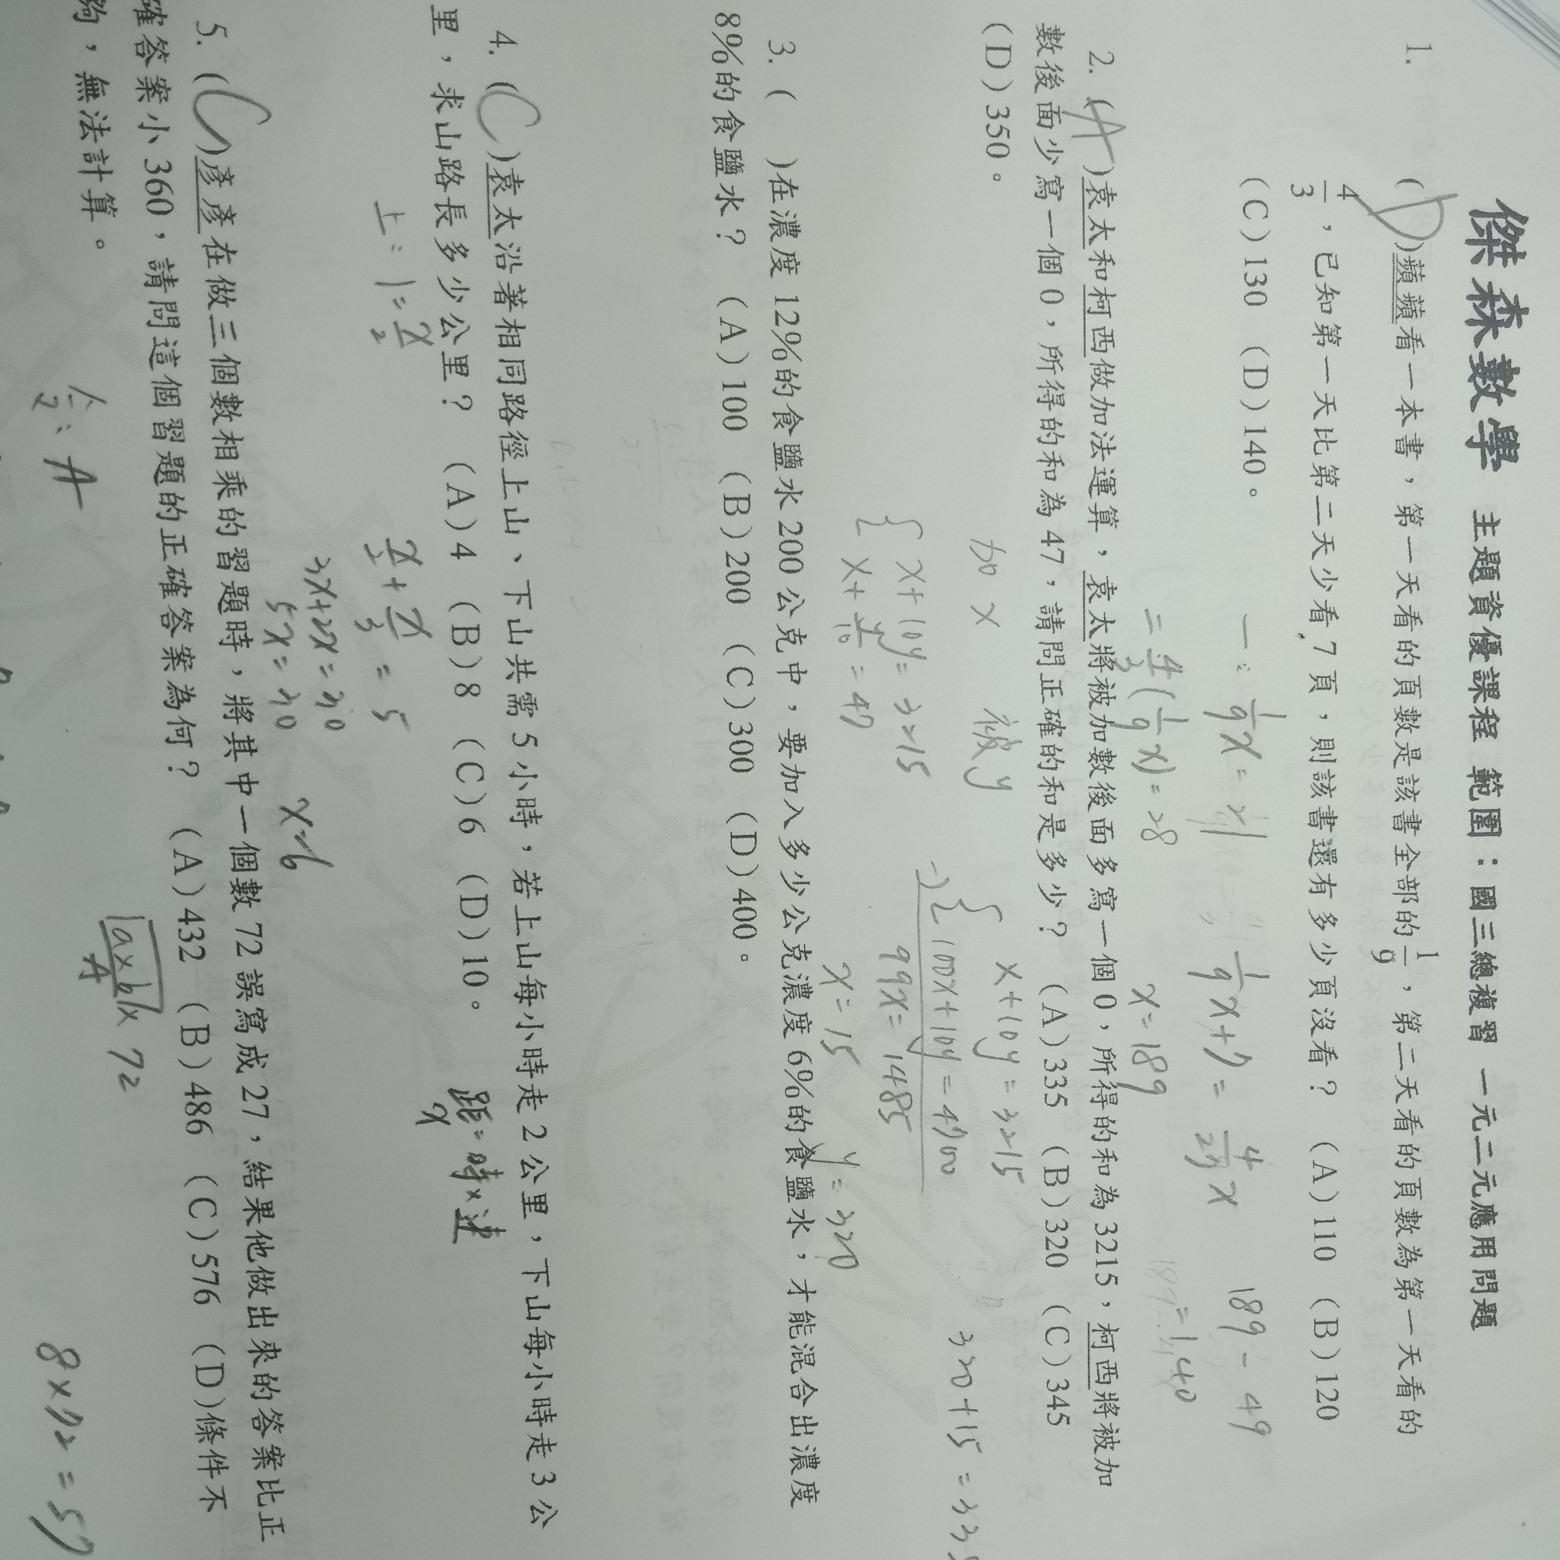 傑森數學 主題資優課程 範圍：國三總複習 一元二元應用問題
1. (D)蘋蘋看一本書，第一天看的頁數是該書全部的 1/9，第二天看的頁數為第一天看的
4/3，已知第一天比第二天少看 7 頁，則該書還有多少頁沒看？ (A)110 (B)120
(C)130 (D)140。
一: 1/9 x = 21
1/9 x + 7 = 4/27 x
189 - 49
= 140
二 4/3(1/9 x) = 28
x = 189
2. (A)袁太和柯西做加法運算，袁太將被加數後面多寫一個 0，所得的和為 3215，柯西將被加
數後面少寫一個 0，所得的和為 47，請問正確的和是多少？ (A)335 (B)320 (C)345
(D)350。
加 x 被 y
{ x+10y=3215
x+y/10=47
{ x+10y=3215
-) 100x+10y=4700
99x=1485
x=15
y=320
320+15=335
3. ( )在濃度 12%的食鹽水 200 公克中，要加入多少公克濃度 6%的食鹽水，才能混合出濃度
8%的食鹽水？ (A)100 (B)200 (C)300 (D)400。
4. (C)袁太沿著相同路徑上山、下山共需 5 小時，若上山每小時走 2 公里，下山每小時走 3 公
里，求山路長多少公里？ (A)4 (B)8 (C)6 (D)10。
距=時×速
x
x/2 + x/3 = 5
3x+2x=30
5x=30
x=6
5. (C)彥彥在做三個數相乘的習題時，將其中一個數 72 誤寫成 27，結果他做出來的答案比正
確答案小 360，請問這個習題的正確答案為何？ (A)432 (B)486 (C)576 (D)條件不
夠，無法計算。
a×b×72
A
8×72=57